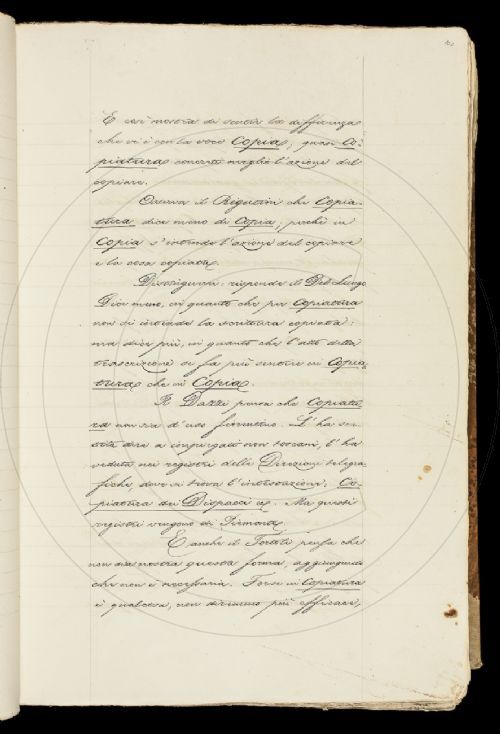 E così mostra di sentir la differenza
che vi è con la voce Copia, quasi Co-
piatura concreti meglio l'azione del
copiare.
Osserva il Rigutini che Copia-
tura dice meno di Copia, perché in
Copia s'intende l'azione del copiare
e la cosa copiata.
Distinguerei risponde il Del Lungo
Dice meno, in quanto che per Copiatura
non si intende la scrittura copiata:
ma dice più, in quanto che l'atto della
trascrizione si fa più sentire in Copia-
tura che in Copia.
Il Dazzi pensa che Copiatu-
ra non sia d'uso fiorentino. L'ha sen-
tita dire a impiegati non toscani, l'ha
veduta nei registri della Direzione telegra
fiche, dove si trova l'intestazione: Co-
piatura dei Dispacci ec. Ma questi
registri vengono di Piemonte.
E anche il Tortoli pensa che
non sia nostra questa forma, aggiungendo
che non è necessaria. Forse in Copiatura
è qualcosa, non diremo più efficace,